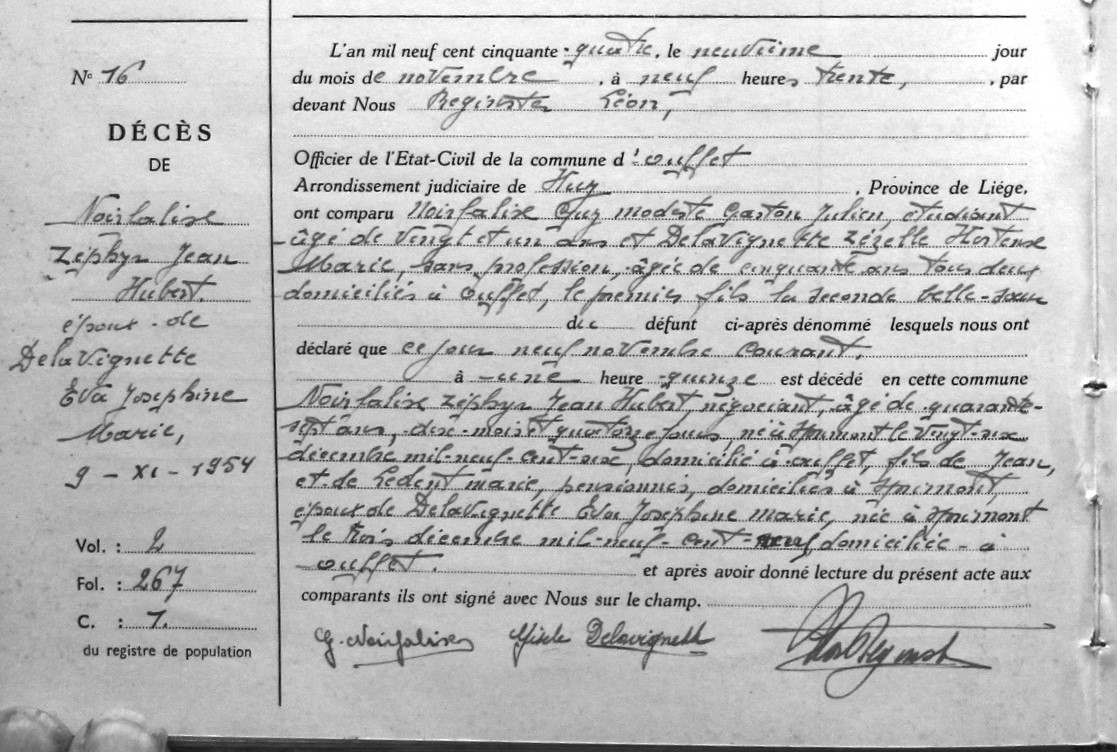 N° 16
DÉCÈS
DE
Noirfalise
Zéphyr Jean
Hubert.
époux de
Delavignette
Eva Josephine
Marie,
9 - XI - 1954
Vol. : 2
Fol. : 267
C. : 7.
du registre de population
L'an mil neuf cent cinquante-quatre, le neuvième jour
du mois de novembre, à neuf heures trente, , par
devant Nous Léon,
Officier de l'Etat-Civil de la commune d'ouffet
Arrondissement judiciaire de Huy , Province de Liége,
ont comparu Noirfalise Guy modeste Gaston Julien, étudiant
âgé de vingt et un ans et Delavignette Hortense
Marie, sans profession, âgée de cinquante ans tous deux
domiciliés à ouffet, le premier fils la seconde belle-sœur
du défunt ci-après dénommé lesquels nous ont
déclaré que ce jour neuf novembre courant.
à une heure quinze est décédé en cette commune
Noirfalise Zéphyr Jean Hubert, négociant, âgé de quarante-
sept ans, dix mois et quatorze jours, né à le vingt-six
décembre mil-neuf-cent-six, domicilié à ouffet, fils de Jean,
et de Ledent marie, pensionnés, domiciliés à
époux de Delavignette Eva Josephine marie, née à
le trois décembre mil-neuf-cent-neuf, domiciliée à
ouffet. et après avoir donné lecture du présent acte aux
comparants ils ont signé avec Nous sur le champ.
G. Noirfalise Delavignette